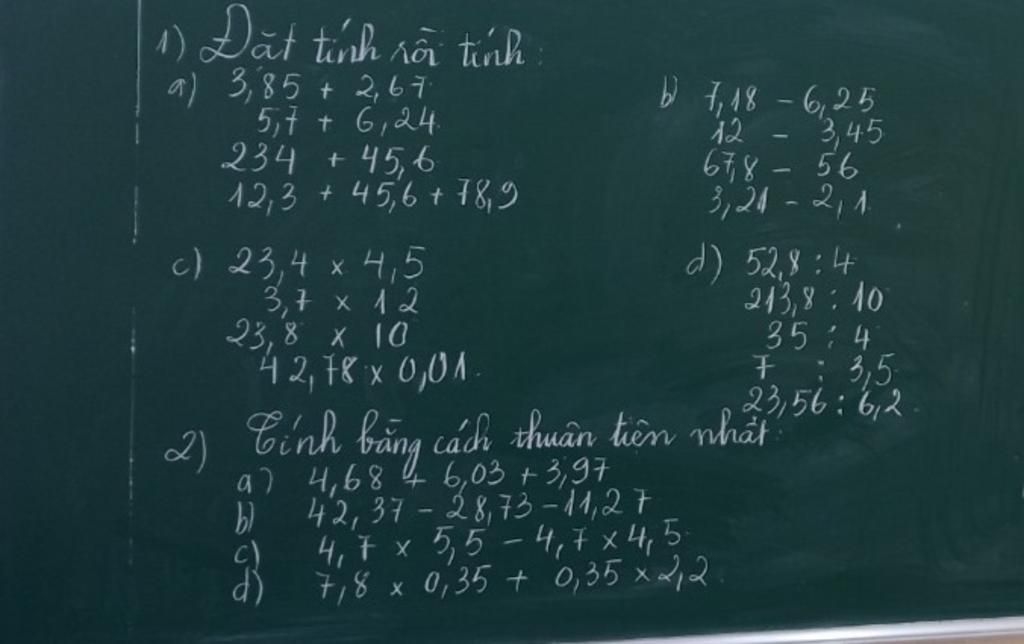 1) Đặt tính rồi tính:
a) 3,85 + 2,67
5,7 + 6,24
234 + 45,6
12,3 + 45,6 + 78,9
b) 7,18 - 6,25
12 - 3,45
67,8 - 56
3,21 - 2,1
c) 23,4 x 4,5
3,7 x 12
23,8 x 10
42,78 x 0,01.
d) 52,8 : 4
213,8 : 10
35 : 4
7 : 3,5
23,56 : 6,2.
2) Tính bằng cách thuận tiện nhất:
a) 4,68 + 6,03 + 3,97
b) 42,37 - 28,73 - 11,27
c) 4,7 x 5,5 - 4,7 x 4,5
d) 7,8 x 0,35 + 0,35 x 2,2.